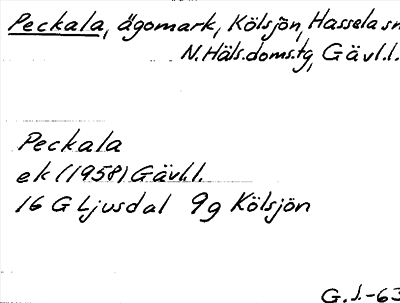 Peckala, ägomark, Kölsjön, Hassela sn
N. Häls. doms.tg, Gävl.l.
Peckala
ek (1958) Gävl.l.
16 G Ljusdal 9g Kölsjön
G.J.-63